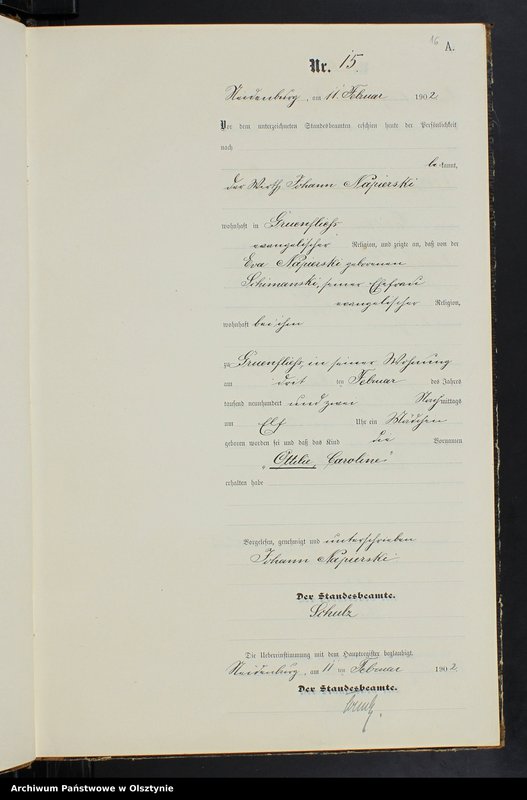 16
A.
Nr. 15.
Neidenburg, am 11. Februar 1902.
Vor dem unterzeichneten Standesbeamten erschien heute der Persönlichkeit
nach
be kannt,
der Wirth Johann Napierski
wohnhaft in Gruenfließ
evangelischer Religion, und zeigte an, daß von der
Eva Napierski geborenen
Schimanski, seiner Ehefrau
evangelischer Religion,
wohnhaft bei ihm
zu Gruenfließ, in seiner Wohnung
am ten Februar des Jahres
tausend neunhundert und zwei Nachmittags
um Elf Uhr ein Mädchen
geboren worden sei und daß das Kind die Vornamen
„Ottilie, Caroline"
erhalten habe
Vorgelesen, genehmigt und unterschrieben
Johann Napierski.
Der Standesbeamte.
Schulz
Die Uebereinstimmung mit dem Hauptregister beglaubigt.
Neidenburg, am 11 ten Februar 1902.
Der Standesbeamte.
Archiwum Państwowe w Olsztynie